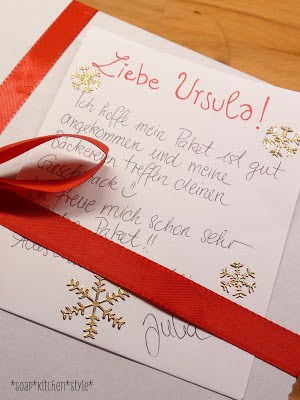 Liebe Ursula!
Ich hoffe mein Paket ist gut
angekommen und meine
Bäckereien treffen deinen
Geschmack
freue mich schon sehr
Paket!!
Julia
*soap*kitchen*style*